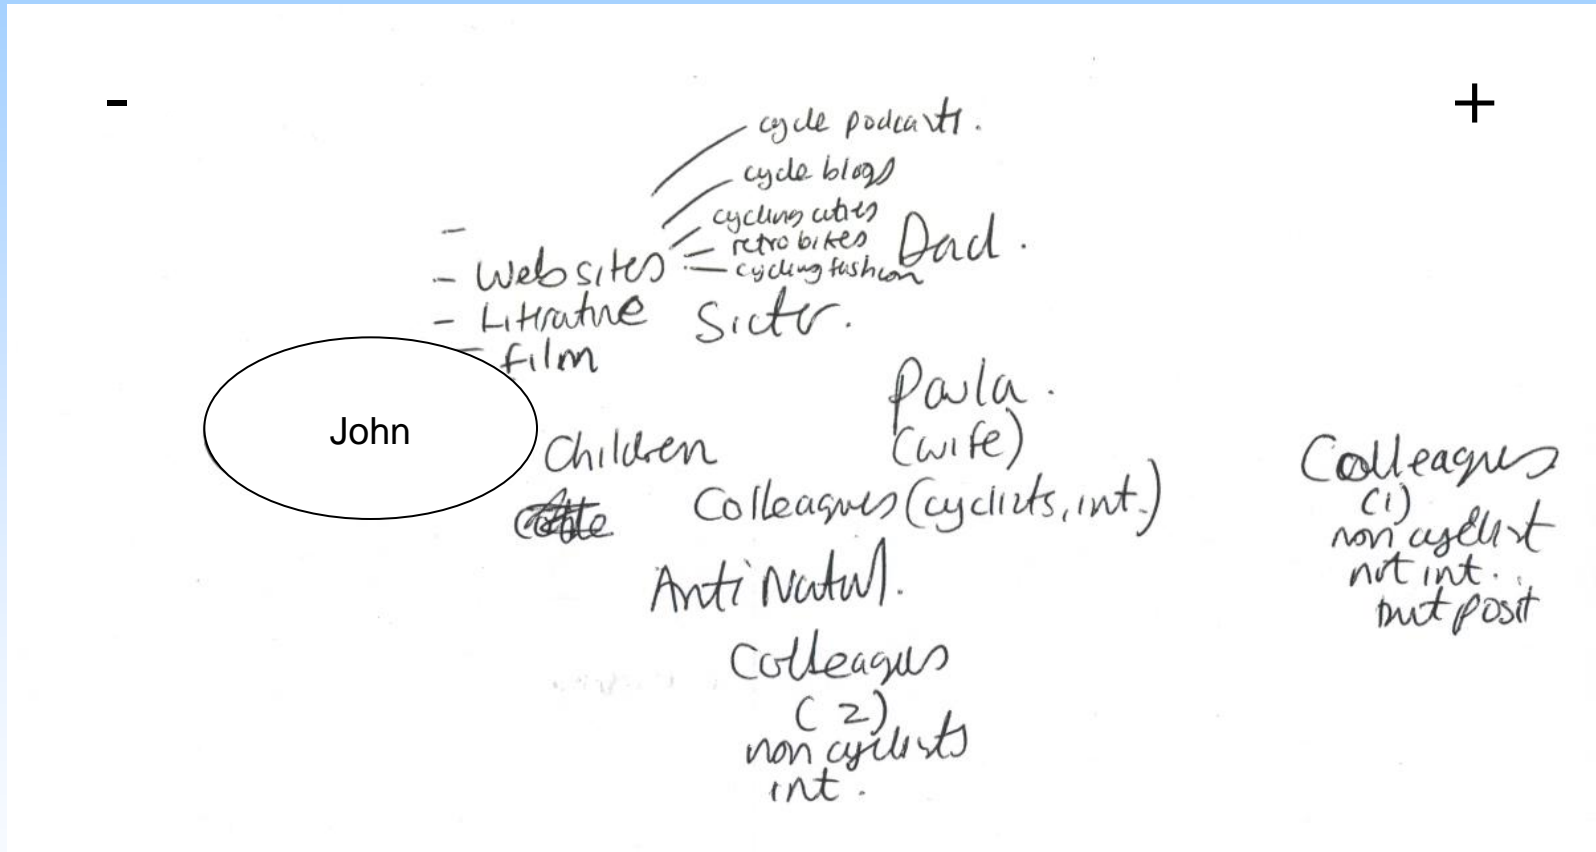 -
+
cycle podcasts.
cycle blogs
cycling cities
retro bikes
cycling fashion
Dad.
-
- Websites
- Litrature
Sister.
- film
John
Paula.
(wife)
Children
Colleagues (cyclists, int.)
Anti Natal.
Colleagues
(2)
non cyclists
int.
Colleagues
(1)
non cyclist
not int.
but posit